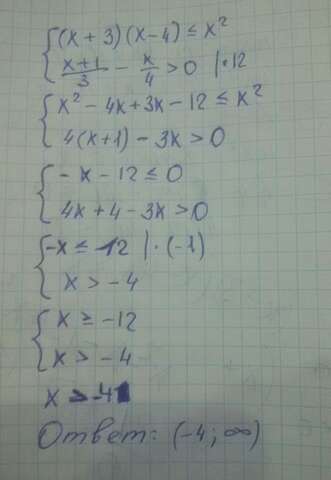 (x + 3)(x - 4) ≤ x²
x+1/3 - x/4 > 0 |·12
x² - 4x + 3x - 12 ≤ x²
4(x+1) - 3x > 0
- x - 12 ≤ 0
4x + 4 - 3x > 0
-x ≤ 12 |·(-1)
x > -4
x ≥ -12
x > -4
x > -4
Ответ: (-4; ∞)